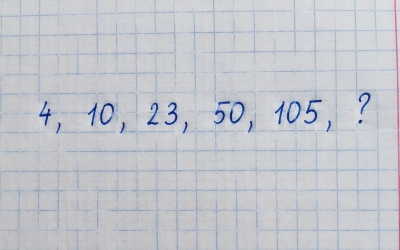 4, 10, 23, 50, 105, ?